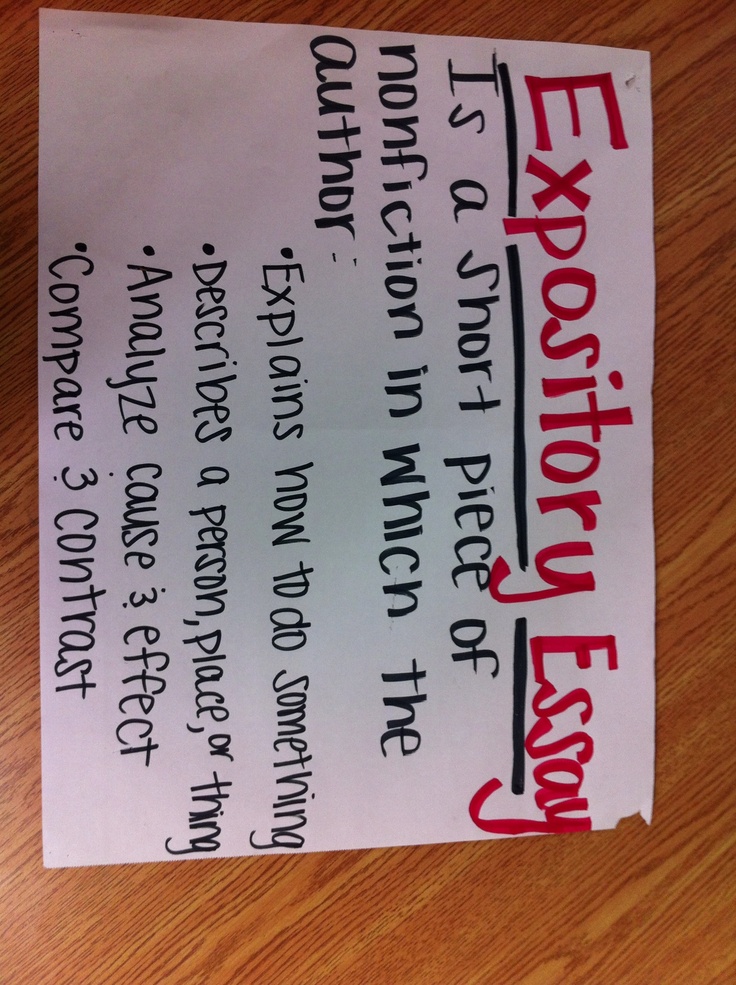 Expository Essay
Is a short piece of
nonfiction in which the
author:
•Explains how to do something
•Describes a person, place, or thing
•Analyze cause & effect
•Compare & contrast